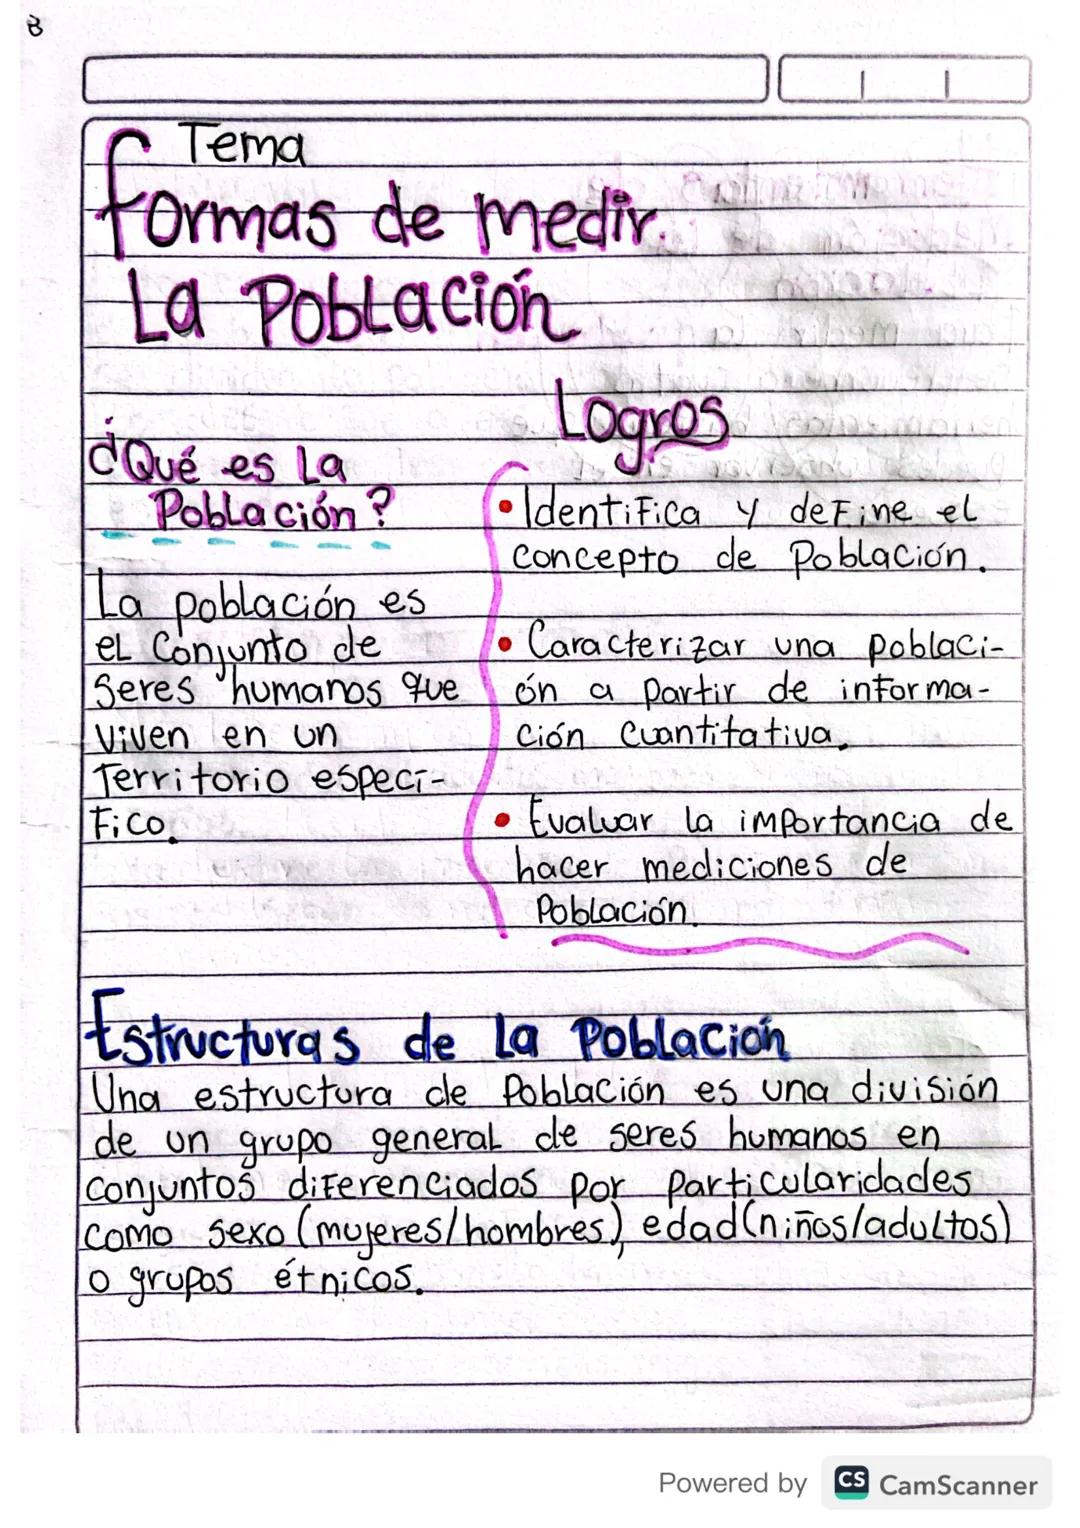 Tema
Formas de medir
La Población
¿Qué es La
Población?
La población es
el Conjunto de
Seres humanos que
viven en un
Territorio especí-
fico.
Logros
• Identifica y define el
concepto de Población.
• Caracterizar una poblaci-
ón a partir de informa-
ción Cuantitativa.
• Evaluar la importancia de
hacer mediciones de
Población.
Estructuras de la Población
Una estructura de Población es una división
de un grupo general de seres humanos en
conjuntos diferenciados por particularidades
como sexo (mujeres/hombres), edad (niños/adultos)
o grupos étnicos.
Powered by CS CamScanner